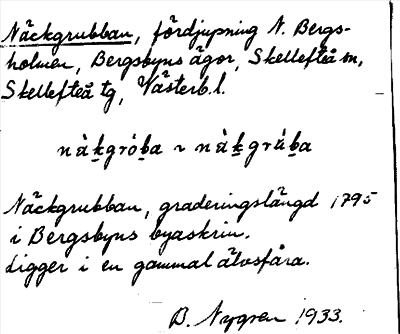 Näckgrubban, fördjupning N. Bergs-
holmen, Bergsbyns ägor, Skellefteå sn,
Skellefteå tg, Västerb. l.
nàk̲grób̲a ~ nàk̲grúb̲a
Näckgrubban, graderingslängd 1795
i Bergsbyns byaskrin.
Ligger i en gammal älvsfåra.
B. Nygren 1933.